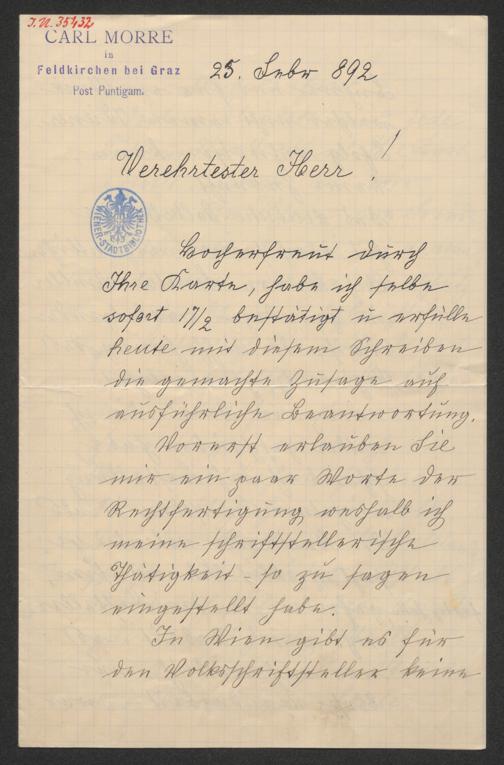 J.N. 35432
CARL MORRE
in
Feldkirchen bei Graz
Post Puntigam.
25. Febr 892
Verehrtester Herr!
WIENER STADTBIBLIOTHEK
Hocherfreut durch
Ihre Karte, habe ich selbe
sofort 17/2 bestätigt u erfülle
heute mit diesem Schreiben
die gemachte Zusage auf
ausführliche Beantwortung.
Vorerst erlauben Sie
mir ein paar Worte der
Rechtfertigung weshalb ich
meine schriftstellerische
Thätigkeit – so zu sagen
eingestellt habe.
In Wien gibt es für
den Volksschriftsteller keine